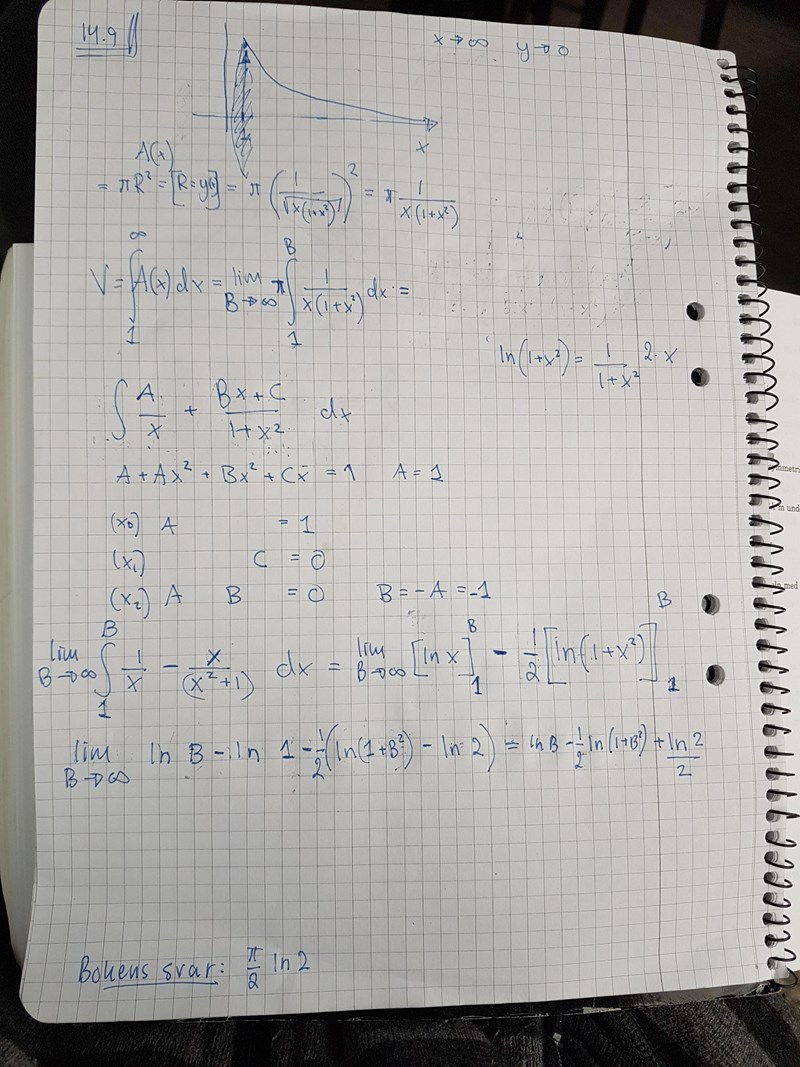 14.9
x→∞ y→0
x
A(x)
= πR² = [R=y(x)] = π (1/√x(1+x²))² = π 1/x(1+x²)
V = ∫₁^∞ A(x) dx = lim B→∞ π ∫₁^B 1/x(1+x²) dx =
ln(1+x²) = 1/1+x² 2·x
∫ A/x + Bx+C/1+x² dx
A + Ax² + Bx² + Cx = 1 A = 1
(x₀) A = 1
(x₁) C = 0
(x₂) A B = 0 B = -A = -1
lim B→∞ ∫₁^B 1/x - x/(x²+1) dx = lim B→∞ [ln x]₁^B - 1/2 [ln(1+x²)]₁^B
lim B→∞ ln B - ln 1 - 1/2 (ln(1+B²) - ln 2) = ln B - 1/2 ln(1+B²) + ln 2/2
Bokens svar: π/2 ln 2